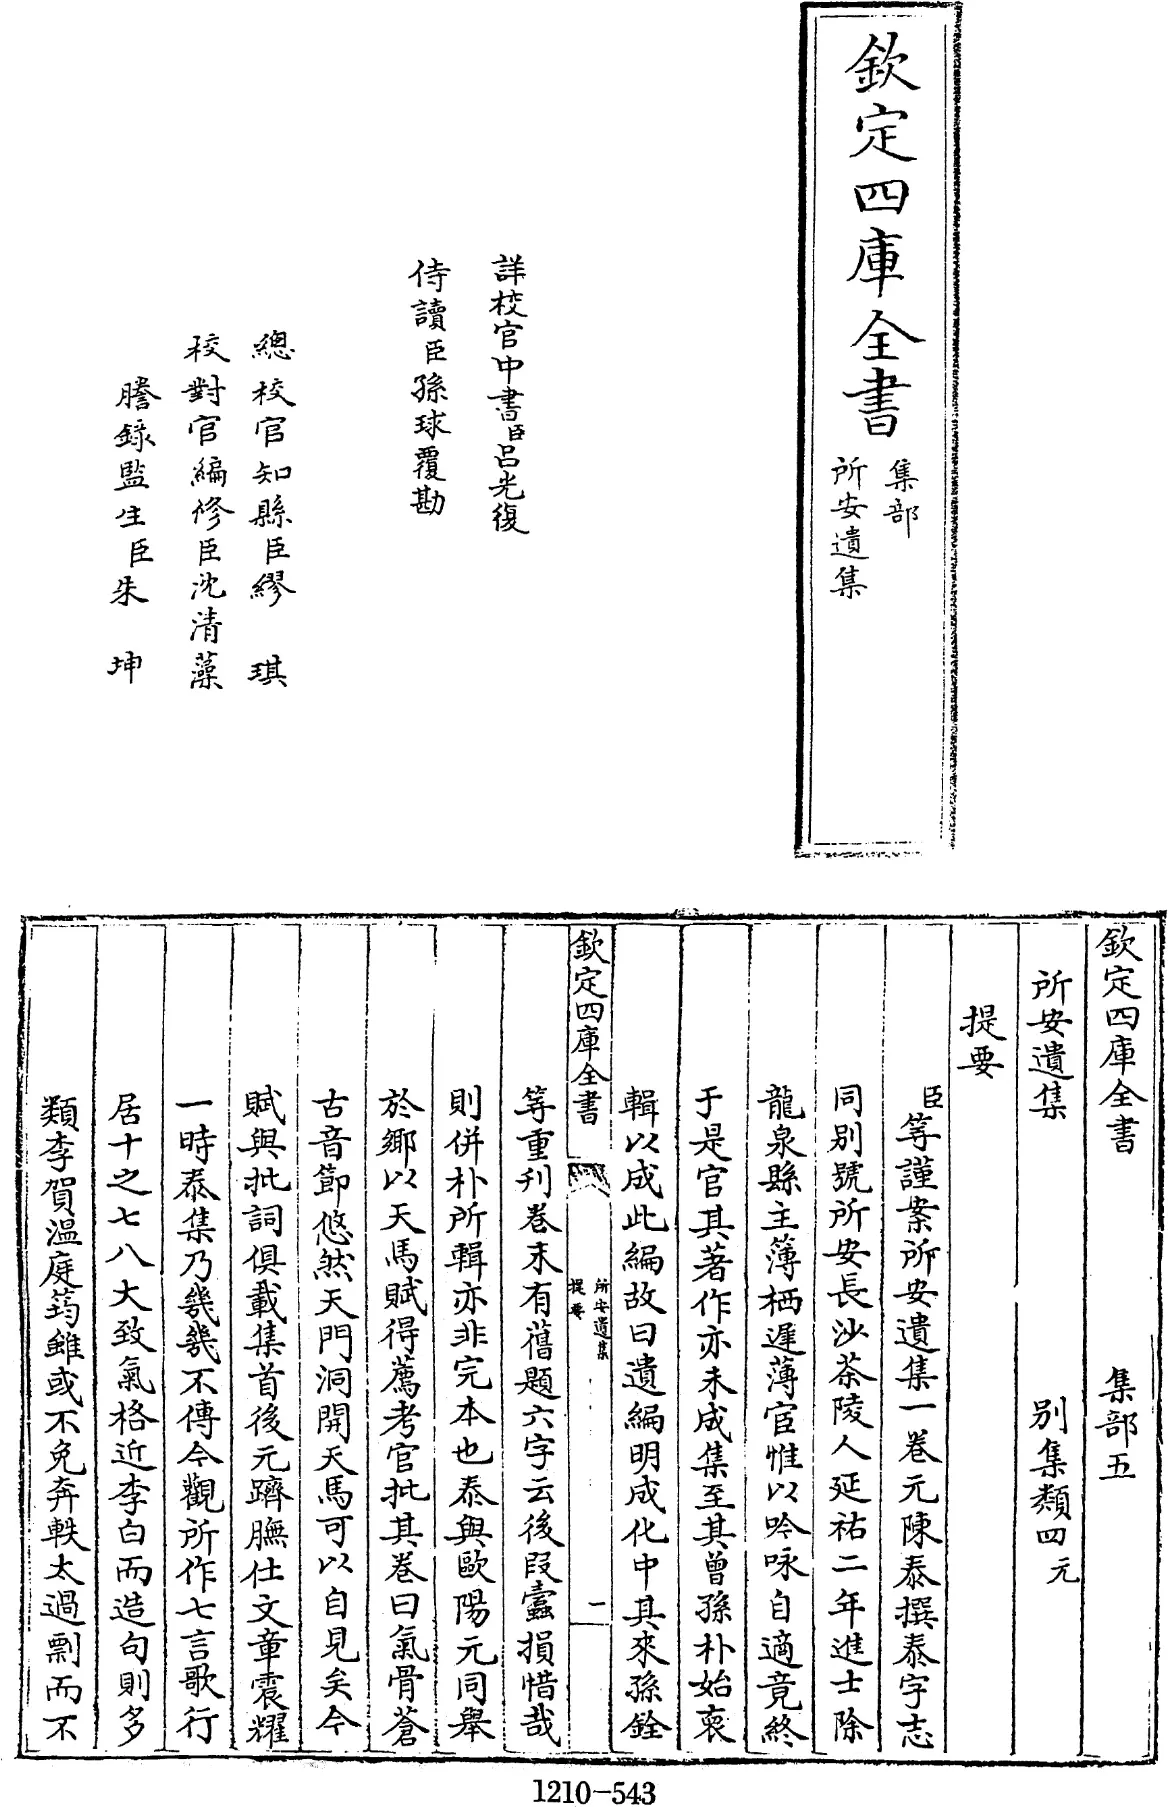 欽定四庫全書
集部
所安遺集
詳校官中書臣呂光復
侍讀臣孫球覆勘
總校官知縣臣繆琪
校對官編修臣沈清藻
謄錄監生臣朱坤
欽定四庫全書 集部五
所安遺集 別集類四元
提要
臣等謹案所安遺集一卷元陳泰撰泰字志
同別號所安長沙茶陵人延祐二年進士除
龍泉縣主薄栖遲薄宦惟以吟咏自適竟終
于是官其著作亦未成集至其曾孫朴始裒
輯以成此編故曰遺編明成化中其來孫銓
欽定四庫全書
所安遺集
提要
一
等重刊卷末有舊題六字云後段蠧損惜哉
則併朴所輯亦非完本也泰與歐陽元同舉
於鄉以天馬賦得薦考官批其卷曰氣骨蒼
古音節悠然天門洞開天馬可以自見矣今
賦與批詞俱載集首後元躋膴仕文章震耀
一時泰集乃幾幾不傳今觀所作七言歌行
居十之七八大致氣格近李白而造句則多
類李賀溫庭筠雖或不免奔軼太過剽而不
1210-543